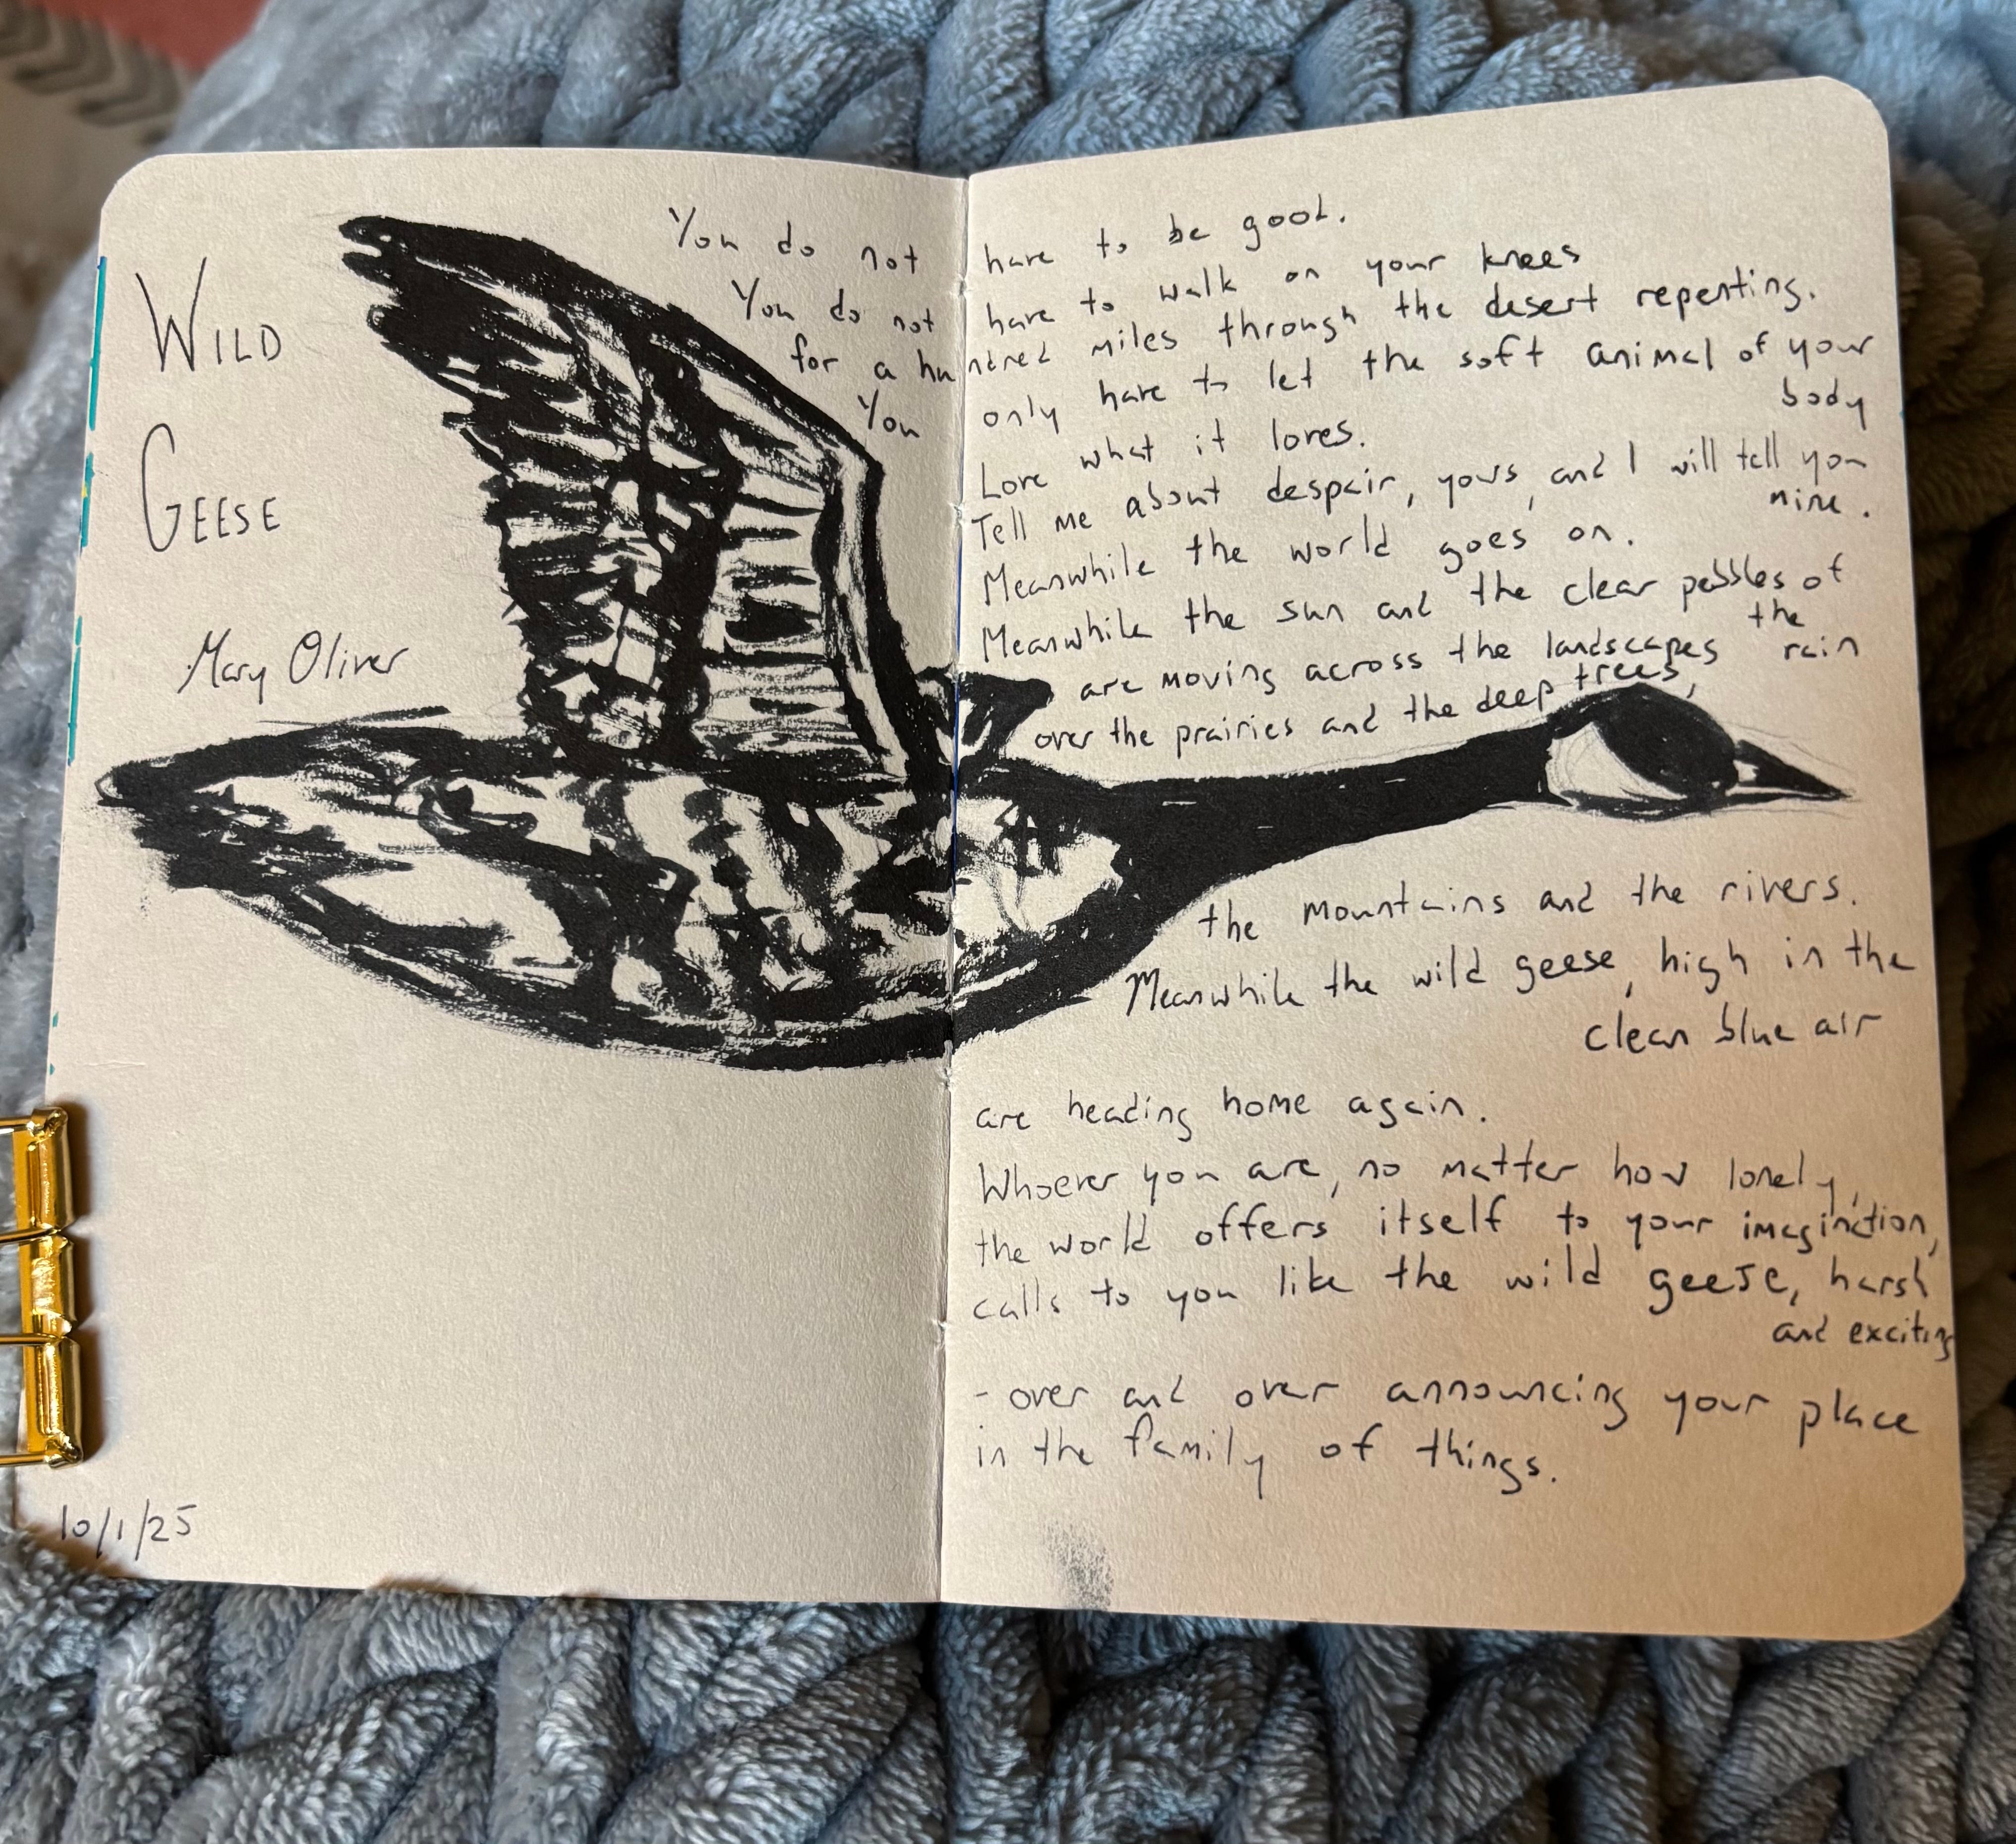 WILD
GEESE
Mary Oliver
You do not have to be good.
You do not have to walk on your knees
for a hundred miles through the desert repenting.
You only have to let the soft animal of your
body
Love what it loves.
Tell me about despair, yours, and I will tell you
mine.
Meanwhile the world goes on.
Meanwhile the sun and the clear pebbles of
the
rain
are moving across the landscapes
over the prairies and the deep trees,
the mountains and the rivers.
Meanwhile the wild geese, high in the
clean blue air
are heading home again.
Whoever you are, no matter how lonely,
the world offers itself to your imagination,
calls to you like the wild geese, harsh
and exciting
- over and over announcing your place
in the family of things.
10/1/25